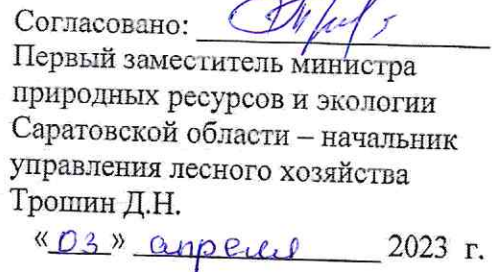 Согласовано:
Первый заместитель министра
природных ресурсов и экологии
Саратовской области – начальник
управления лесного хозяйства
Трошин Д.Н.
«03» апреля 2023 г.